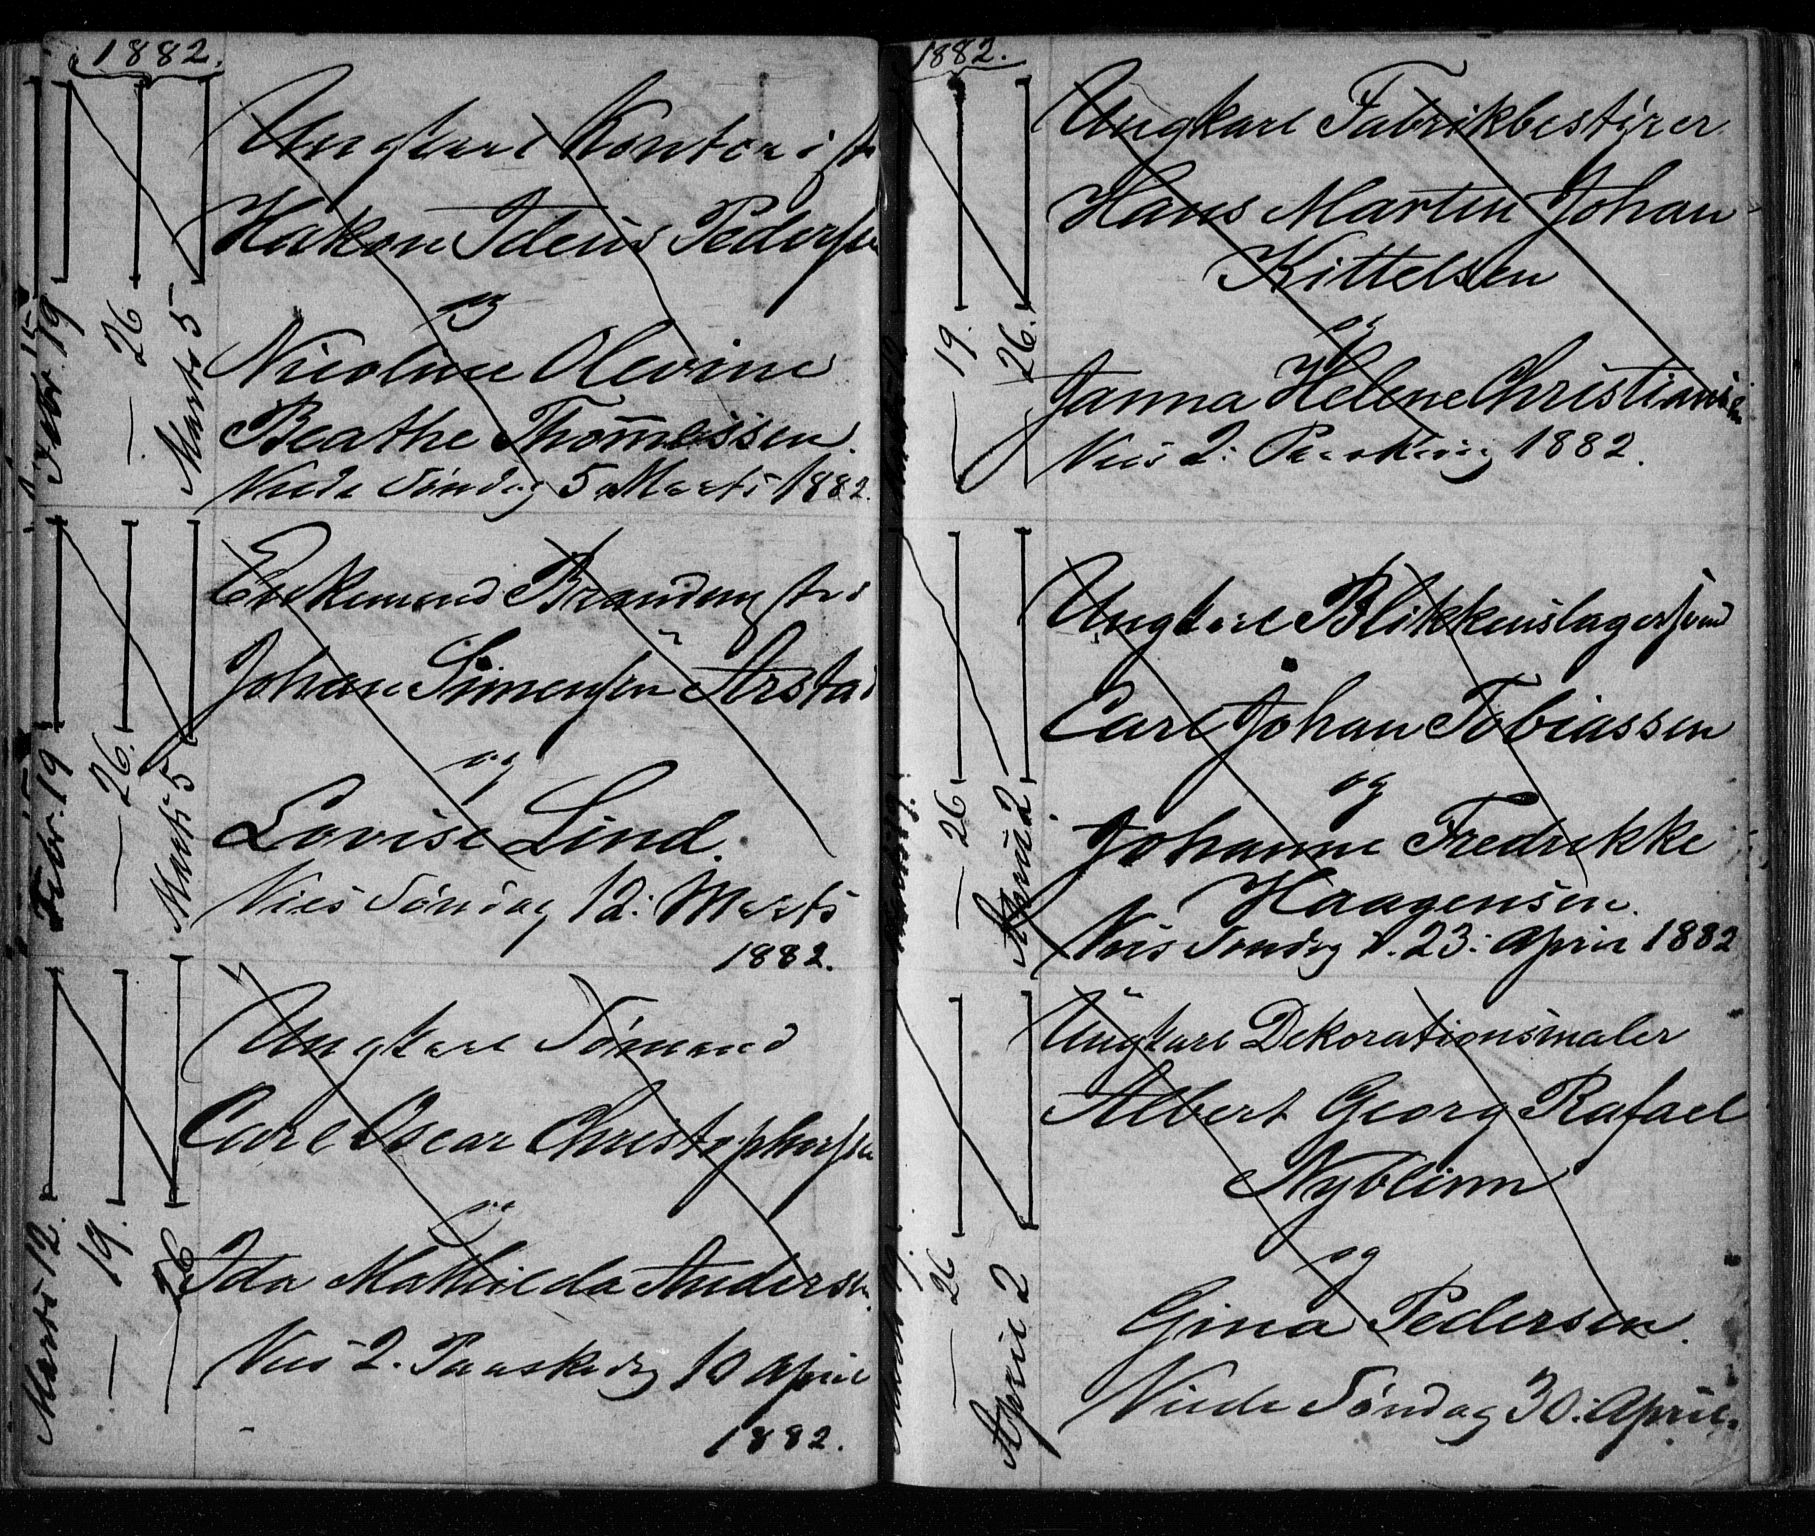 1882.
Febr. 19
— 26
Marts 5
Ungkarl Kontorist
Hakon Ideus Pedersen
og
Nicoline Olevine
Beathe Thom̅essen.
Viede Søndag 5 Marts 1882.
Febr. 19
— 26.
Marts 5
Enkemand Brandkonst
Johan Simensen Arstad
og
Lovise Lind.
Vies Søndag 12. Marts
1882.
Marts 12.
— 19.
— 26
Ungkarl Sømand
Carl Oscar Christophersen
og
Ida Mathilda Andersen.
Vies 2. Paaskedag 10 April
1882.
1882.
— 19.
— 26.
Ungkarl Fabrikbestyrer
Hans Martin Johan
Kittelsen
og
Janna Helene Christiansen
Vies 2. Paaskedag 1882.
— 26
April 2.
Ungkarl Blikkenslagersvend
Carl Johan Tobiassen
og
Johanne Fredrikke
Haagensen.
Vies Søndag d. 23. April 1882
— 26
April 2
Ungkarl Dekorationsmaler
Albert Georg Rafael
Nyblinn
og
Gina Pedersen.
Viede Søndag 30. April.